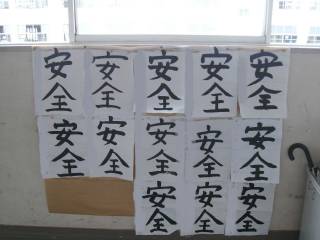 安全
安全
安全
安全
安全
安全
安全
安全
安全
安全
安全
安全
安全